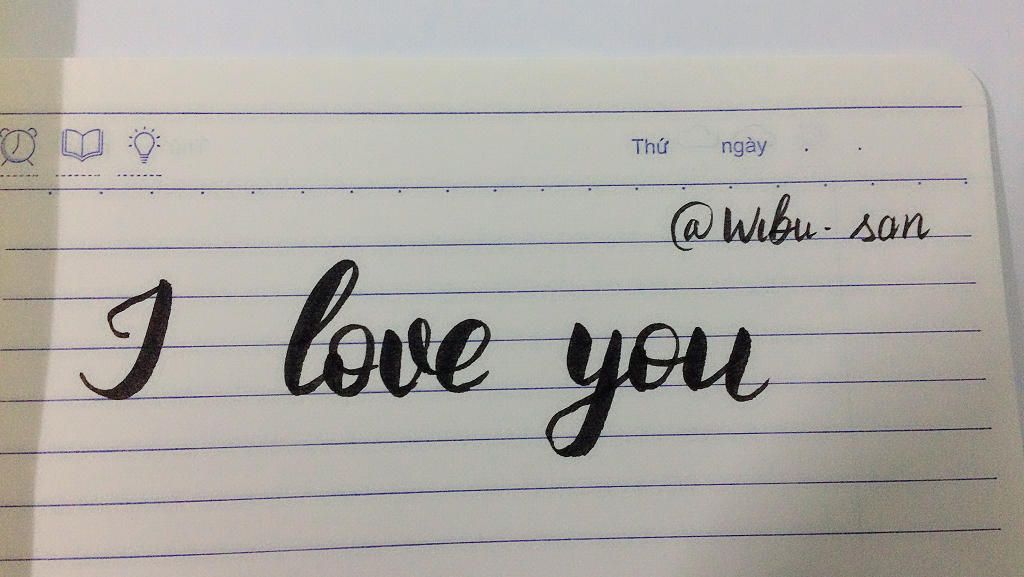 Thứ ngày . .
@Wibu. san
I love you